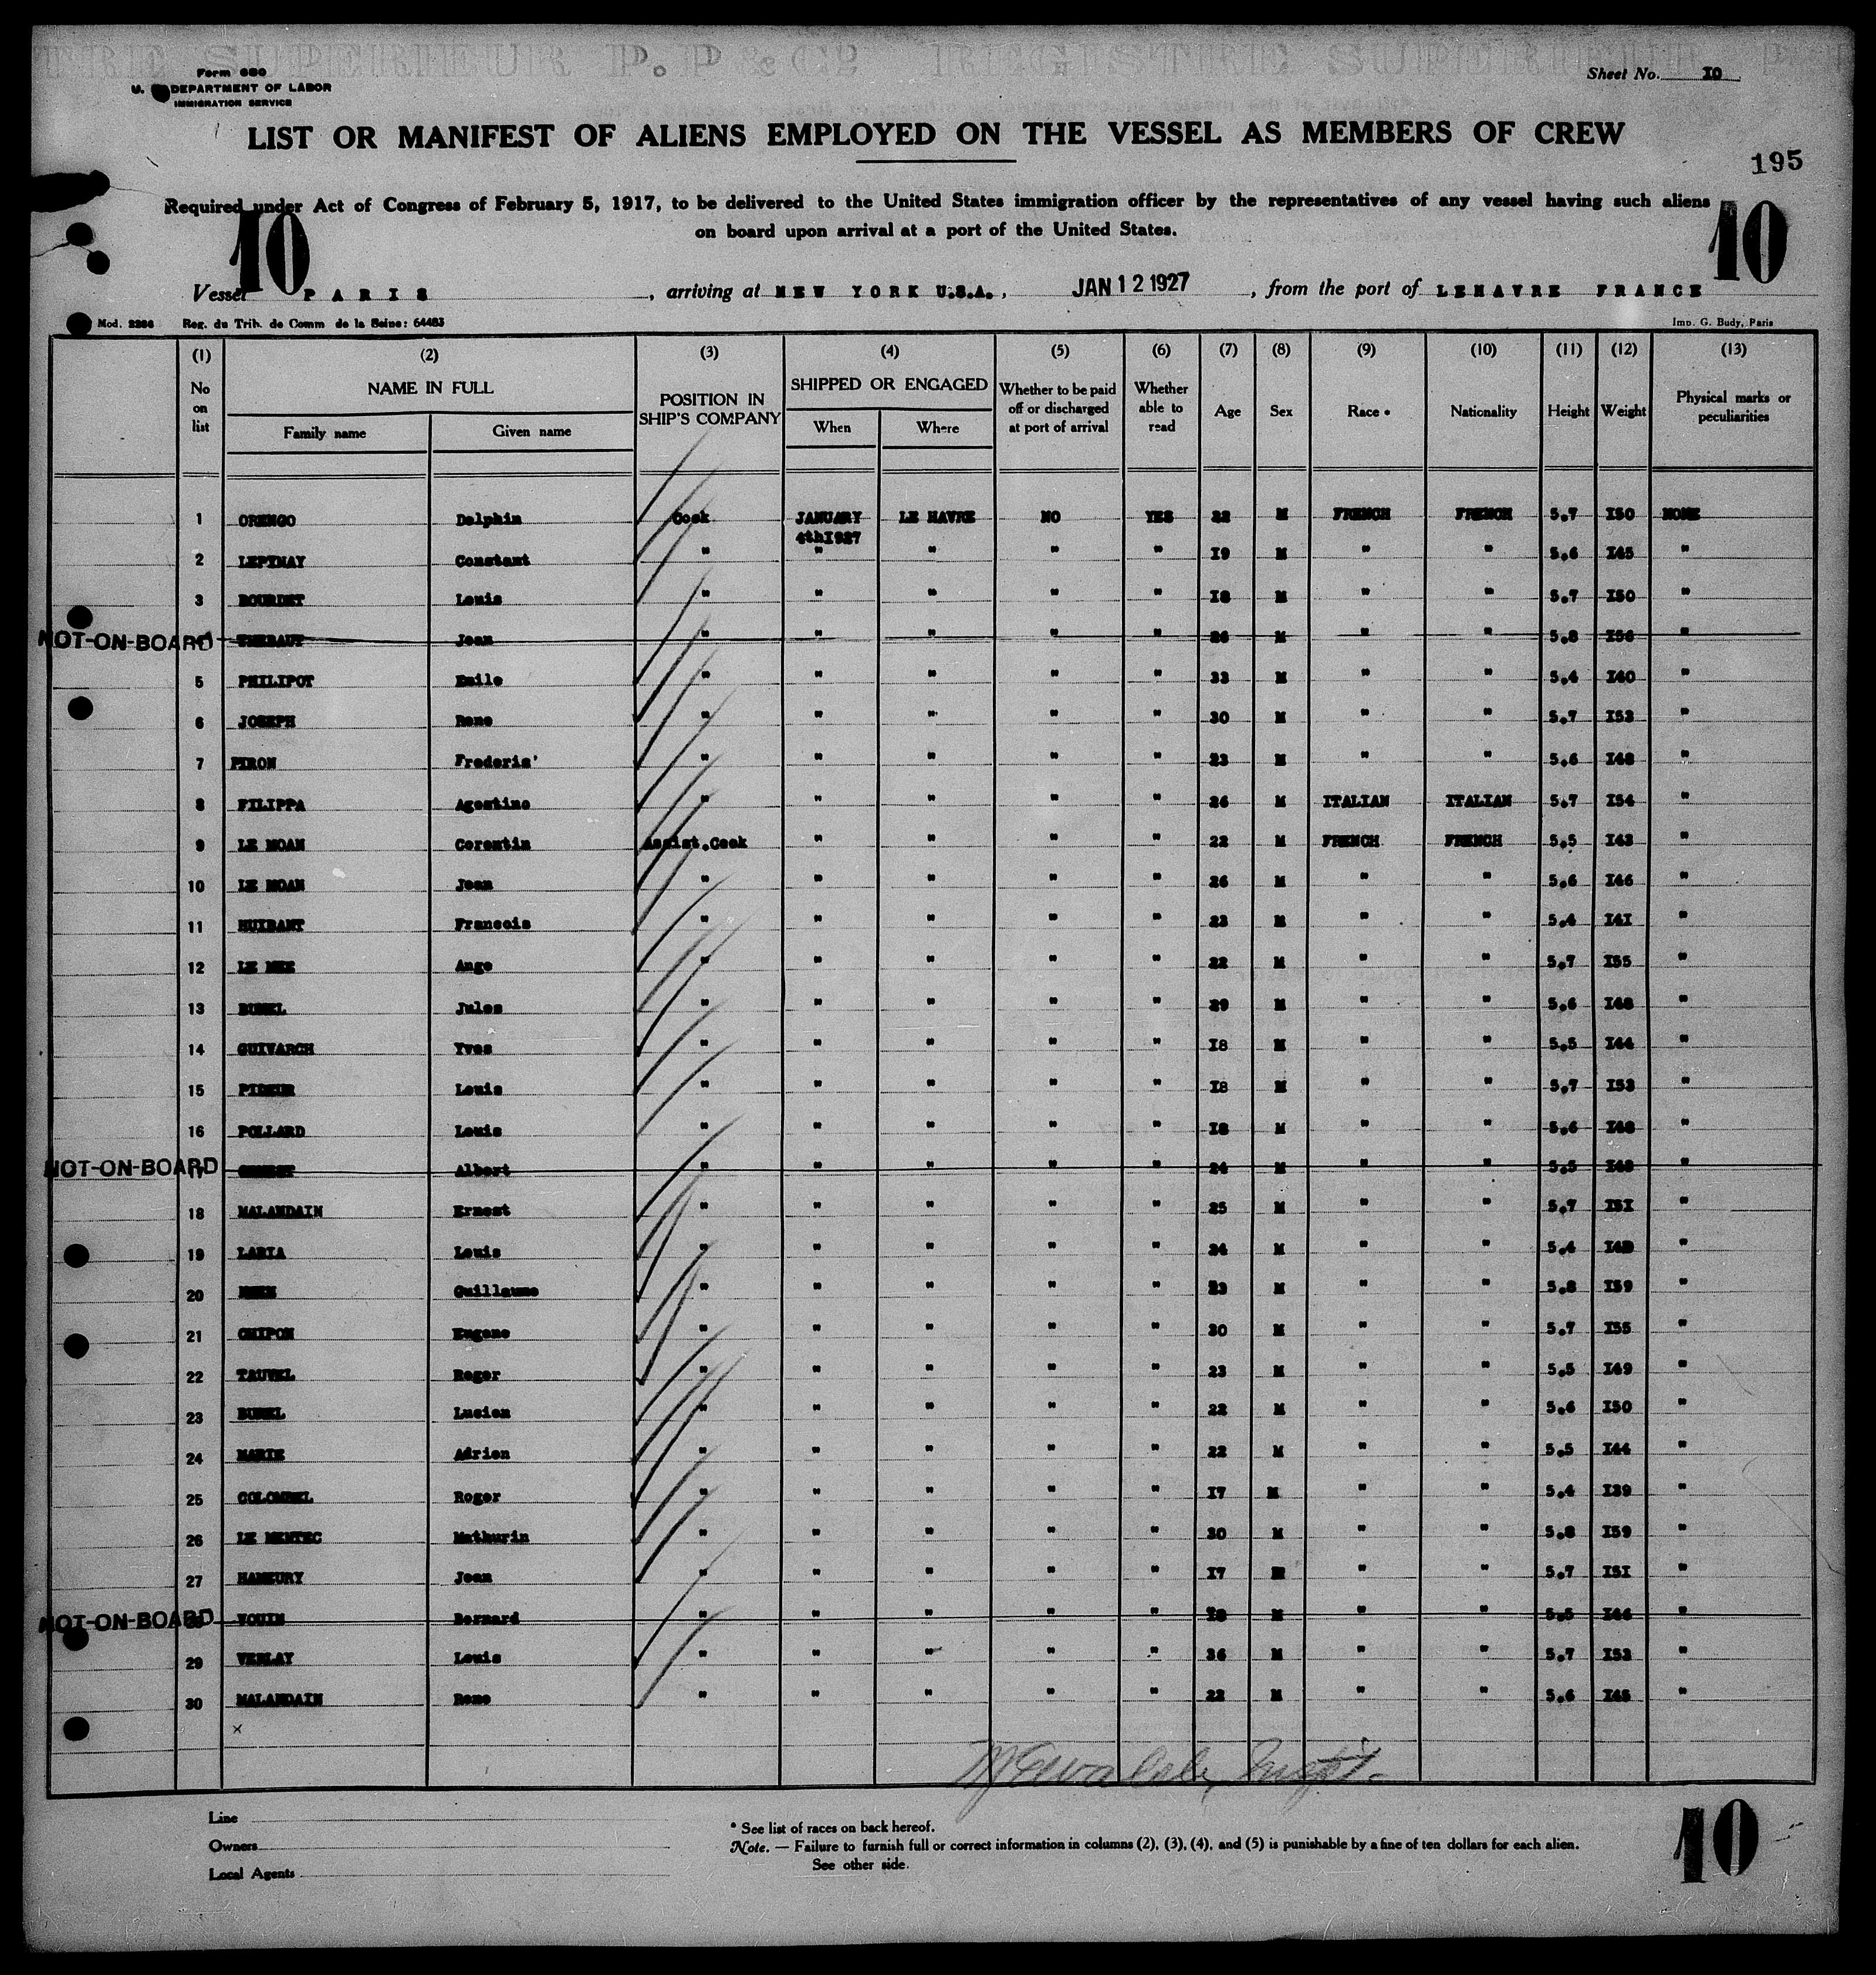 TRE SUPERIEUR P.P & Co REGISTRE SUPERIEUR P.
Form 680
U. S. DEPARTMENT OF LABOR
IMMIGRATION SERVICE
Sheet No. 10
LIST OR MANIFEST OF ALIENS EMPLOYED ON THE VESSEL AS MEMBERS OF CREW
195
Required under Act of Congress of February 5, 1917, to be delivered to the United States immigration officer by the representatives of any vessel having such aliens
on board upon arrival at a port of the United States.
10 10
Vessel PARIS, arriving at NEW YORK U.S.A., JAN 12 1927, from the port of LEHAVRE FRANCE
Mod. 2286 Reg. du Trib. de Comm de la Seine: 64483 Imp. G. Budy, Paris
(1) (2) (3) (4) (5) (6) (7) (8) (9) (10) (11) (12) (13)
No on list NAME IN FULL POSITION IN SHIP'S COMPANY SHIPPED OR ENGAGED Whether to be paid off or discharged at port of arrival Whether able to read Age Sex Race * Nationality Height Weight Physical marks or peculiarities
Family name Given name When Where
1 ORENGO Delphin Cook JANUARY 4th1927 LE HAVRE NO YES M FRENCH FRENCH 5.7 I50 NONE
2 Constant " " " " " I9 M " " 5.6 I45 "
3 BOURDET Louis " " " " " I8 M " " 5.7 I50 "
NOT-ON-BOARD Jean " " " " " 26 M " " 5.8 I56 "
5 PHILIPOT Emile " " " " " 33 M " " 5.4 I40 "
6 JOSEPH Rene " " " " " 30 M " " 5.7 I53 "
7 PIRON Frederic' " " " " " 23 M " " 5.6 I48 "
8 FILIPPA Agostino " " " " " 26 M ITALIAN ITALIAN 5.7 I54 "
9 LE MOAN Corentin Assist.Cook " " " " 22 M FRENCH FRENCH 5.5 I43 "
10 LE MOAN Jean " " " " " 26 M " " 5.6 I46 "
11 Francois " " " " " 23 M " " 5.4 I4I "
12 LE MEE Ange " " " " " 22 M " " 5.7 I55 "
13 Jules " " " " " 29 M " " 5.6 I48 "
14 GUIVARCH Yves " " " " " I8 M " " 5.5 I44 "
15 Louis " " " " " I8 M " " 5.7 I53 "
16 POLLARD Louis " " " " " I8 M " " 5.6 I48 "
NOT-ON-BOARD 17 Albert " " " " " 24 M " " 5.5 "
18 MALANDAIN Ernest " " " " " 25 M " " 5.7 I5I "
19 LARIA Louis " " " " " 24 M " " 5.4 "
20 Guillaume " " " " " M " " 5.8 I59 "
21 CHIPON Eugene " " " " " 30 M " " 5.7 I55 "
22 TAUVEL Roger " " " " " 23 M " " 5.5 I49 "
23 Lucien " " " " " 22 M " " 5.6 I50 "
24 MARIE Adrien " " " " " 22 M " " 5.5 I44 "
25 COLOMBEL Roger " " " " " I7 M " " 5.4 I39 "
26 LE MENTEC Mathurin " " " " " 30 M " " 5.8 I59 "
27 HAMEURY Jean " " " " " I7 M " " 5.7 I5I "
NOT-ON-BOARD VOUIN Bernard " " " " " M " " 5.5 I46 "
29 VERLAY Louis " " " " " 36 M " " 5.7 I53 "
30 MALANDAIN Rene " " " " " 22 M " " 5.6 I45 "
x
Line
Owners
Local Agents
* See list of races on back hereof.
Note. — Failure to furnish full or correct information in columns (2), (3), (4), and (5) is punishable by a fine of ten dollars for each alien.
See other side.
10